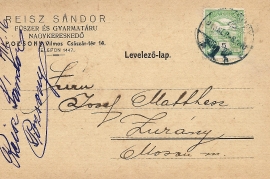 REISZ SÁNDOR
FŰSZER ÉS GYARMATÁRU
NAGYKERESKEDŐ
POZSONY, Vilmos Császár-tér 14.
TELEFON 1447.
Levelező-lap.
Herrn
Josef Matthes
Zurány
Moson m.
Reisz Sándor
Pozsony